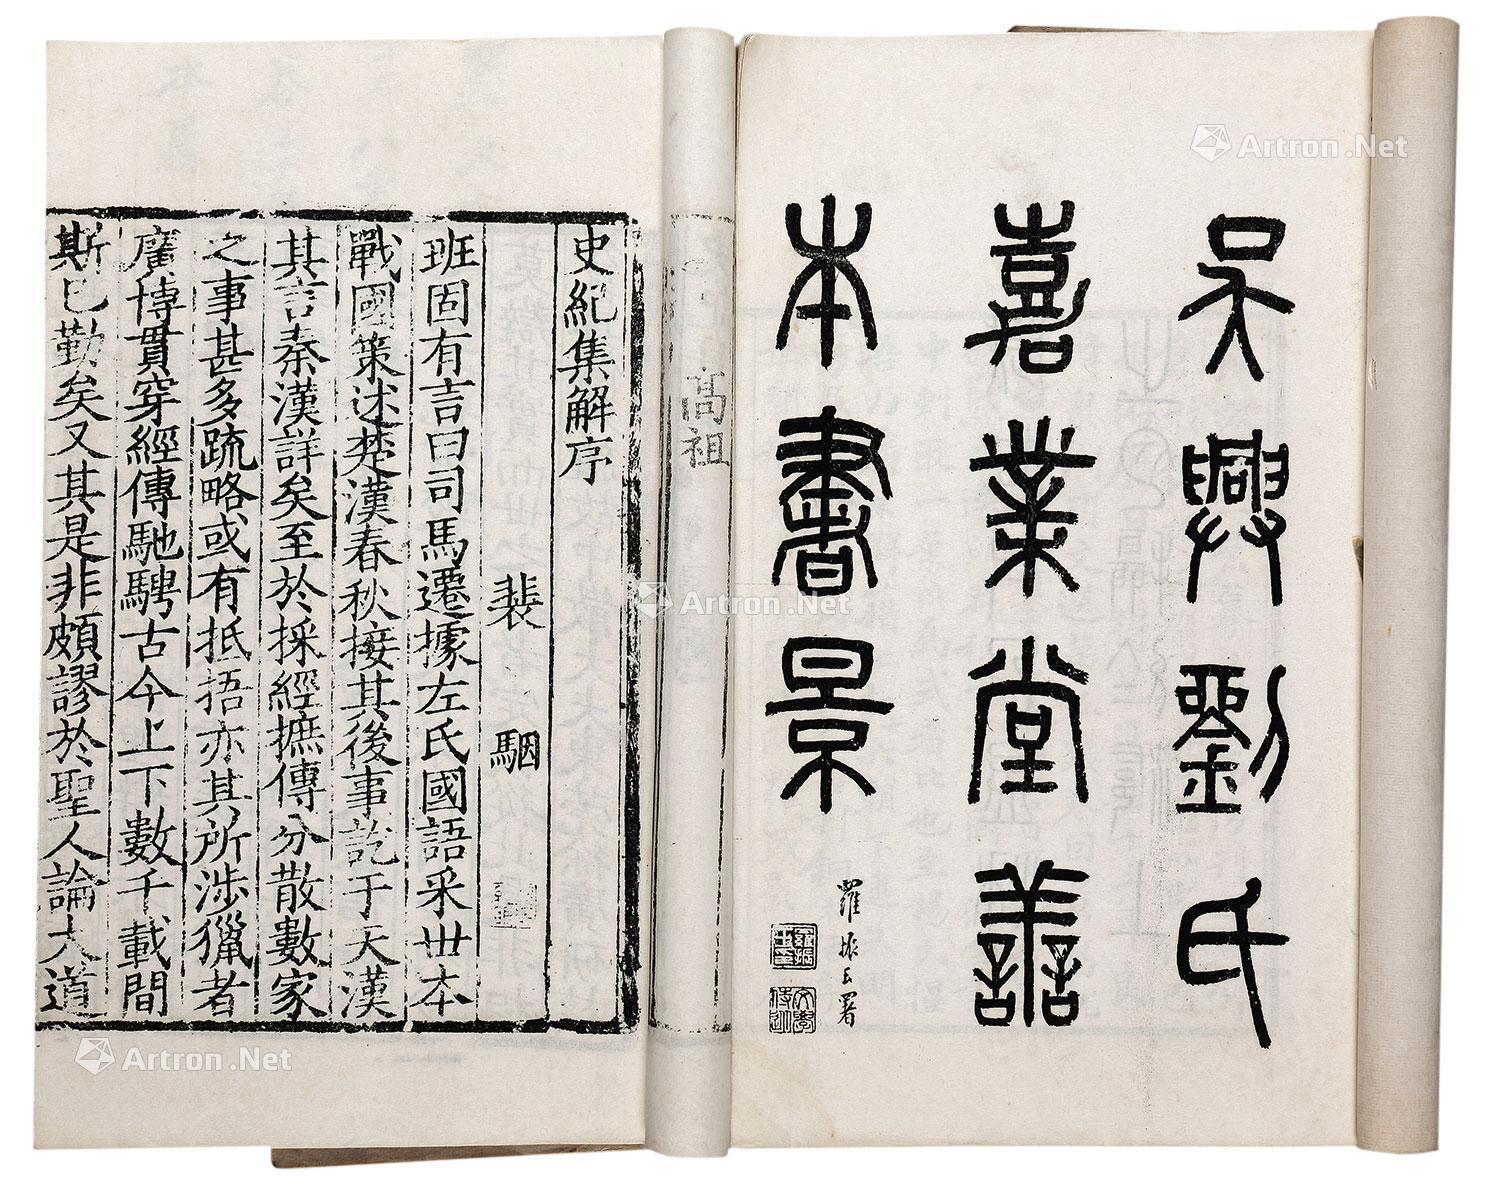 吳興劉氏
嘉業堂善
本書景
羅振玉署
高祖
史紀集解序
裴駰
班固有言曰司馬遷據左氏國語采世本
戰國策述楚漢春秋接其後事訖于天漢
其言秦漢詳矣至於採經摭傳分散數家
之事甚多疏略或有抵捂亦其所涉獵者
廣博貫穿經傳馳騁古今上下數千載間
斯已勤矣又其是非頗謬於聖人論大道
Artron.Net
Artron.Net
Artron.Net